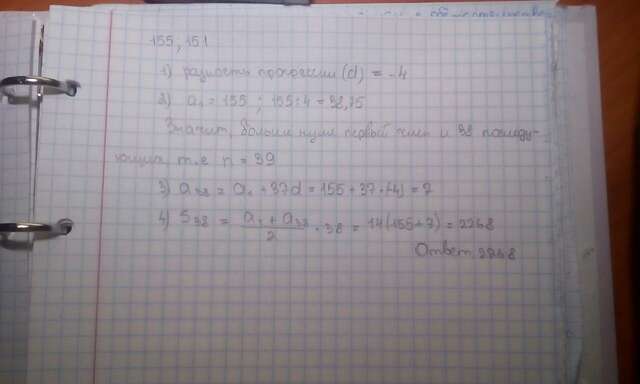 155, 151
1) разность прогрессии (d) = -4
2) a₁ = 155 ; 155:4 = 38,75
Значит, больше нуля первый член и 38 последу-
ющих т.е n = 39
3) a₃₈ = a₁ + 37d = 155 + 37·(-4) = 7
4) S₃₈ = (a₁ + a₃₈)/2 · 38 = 14(155+7) = 2268
Ответ: 2268